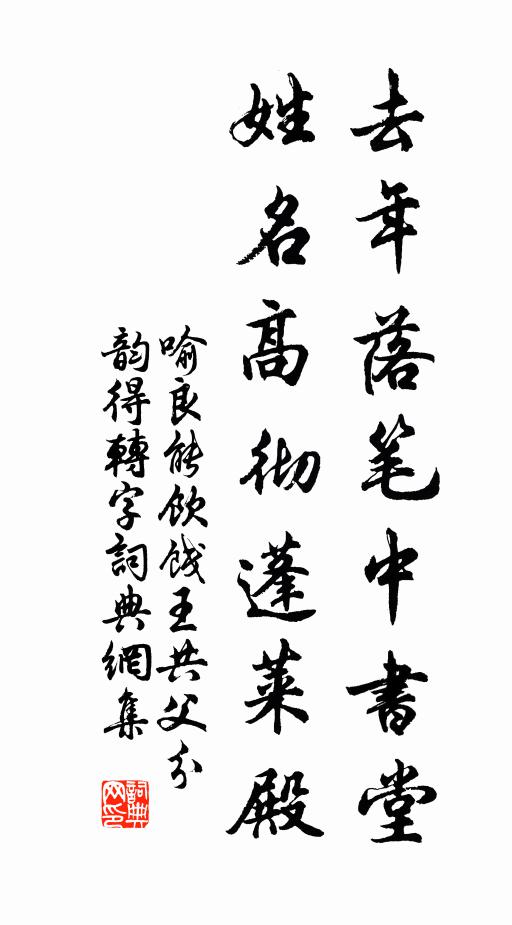 去年落笔中書堂
姓名高彻蓬莱殿
喻良能飲餞王共父分
韵得轉字詞典網集
詞典网印